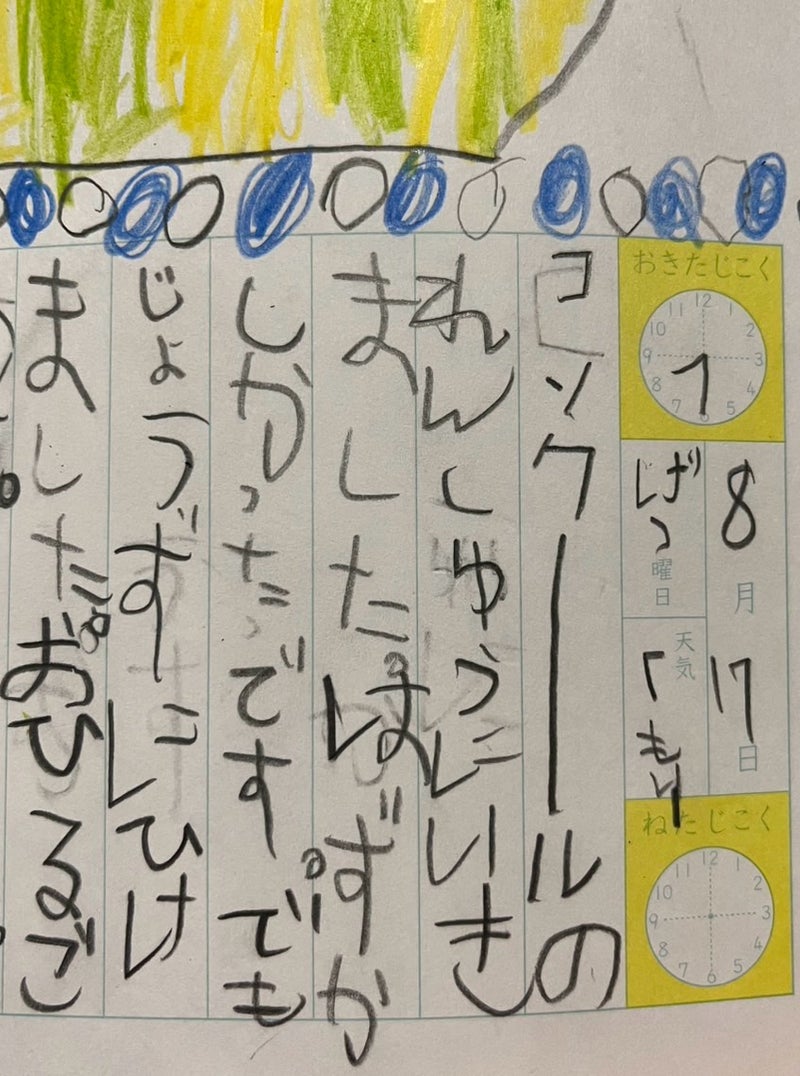 おきたじこく
12 1 2 3 4 5 6 7 8 9 10 11
8月17日
げつ曜日
天気 くもり
ねたじこく
12 1 2 3 4 5 6 7 8 9 10 11
コンクールの
れんしゅうにいき
ました。はずか
しかったです。でも
じょうずにひけ
ました。おひるご